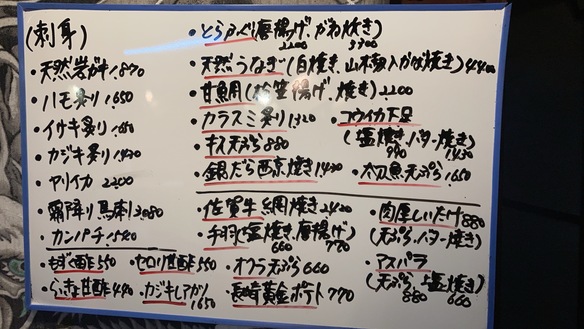 (刺身)
・天然岩ガキ 1870
・ハモ炙り 1650
・イサキ炙り
・カジキ炙り 1430
・ヤリイカ 2200
・霜降り馬刺し 3080
・カンパチ 1540
・もずく酢 550
・セロリ甘酢 550
・らっきょ甘酢 440
・カジキレアカツ 1650
・とらふぐ(唐揚げ、かわ焼き)
2200 3300
・天然うなぎ(白焼き、山椒入かば焼き) 4400
・甘鯛(松笠揚げ、焼き) 2200
・カラスミ炙り 1320
・コウイカ下足
(塩焼き、バター焼き)
990 1430
・キス天ぷら 880
・銀だら西京焼き 1430
・太刀魚天ぷら 1650
・佐賀牛網焼き 2420
・手羽(塩焼き、唐揚げ)
660 770
・オクラ天ぷら 660
・長崎黄金ポテト 770
・肉厚しいたけ 880
(天ぷら、バター焼き)
・アスパラ
(天ぷら、塩焼き)
880 660